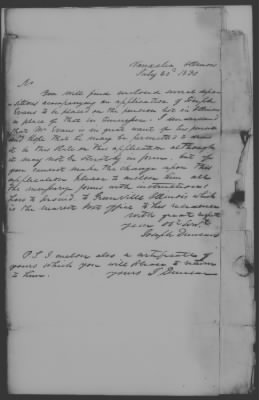 Vandalia Illinois
July 20th 1830
Sir
You will find enclosed several depo-
sitions accompanying an application of Joseph
Evans to be placed on the pension list in Illinois
in place of that in Tennessee. I understand
that Mr Evans is in great want for his pension
and hope that he may be permitted to draw
it in this State on this application although
it may not be strictly in form, but if
you cannot make the change upon this
application please to enclose him all
the necessary forms with instructions
how to proceed to Greenville Illinois which
is the nearest Post office to his residence
with great respect
your Obt Servt
Joseph Duncan
P.S. I enclose also a certificate of
yours which you will please to return
to him. yours J Duncan